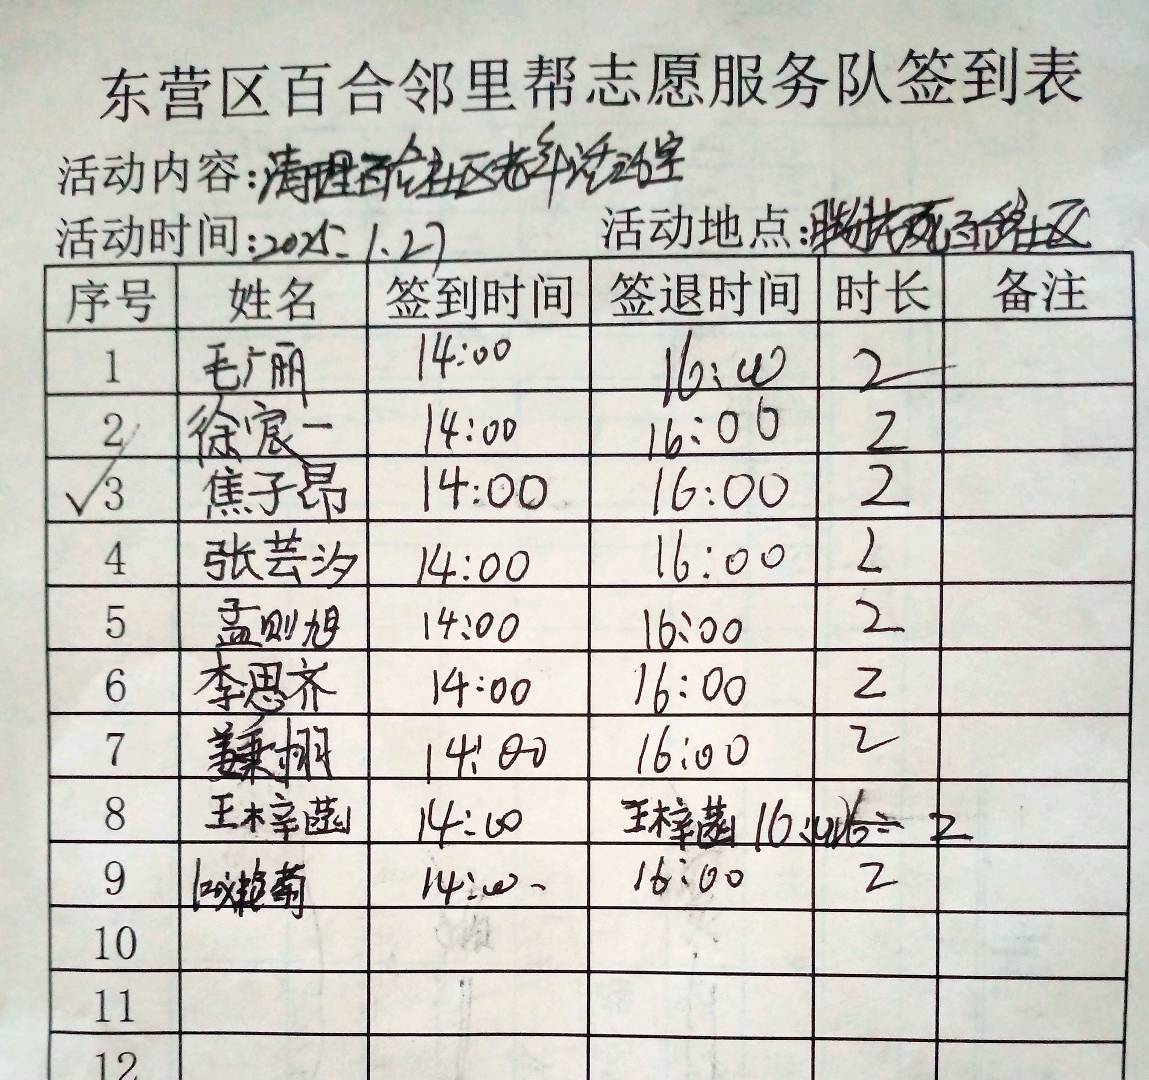 东营区百合邻里帮志愿服务队签到表
活动内容:清理百合社区老年活动室
活动时间:2025.1.27 活动地点:百合社区
序号 姓名 签到时间 签退时间 时长 备注
1 毛广丽 14:00 16:00 2
2 徐宸一 14:00 16:00 2
3 焦子昂 14:00 16:00 2
4 张芸汐 14:00 16:00 2
5 孟则旭 14:00 16:00 2
6 李思齐 14:00 16:00 2
7 姜秉栩 14:00 16:00 2
8 王梓菡 14:00 王梓菡 16:00 2
9 14:00 16:00 2
10
11
12